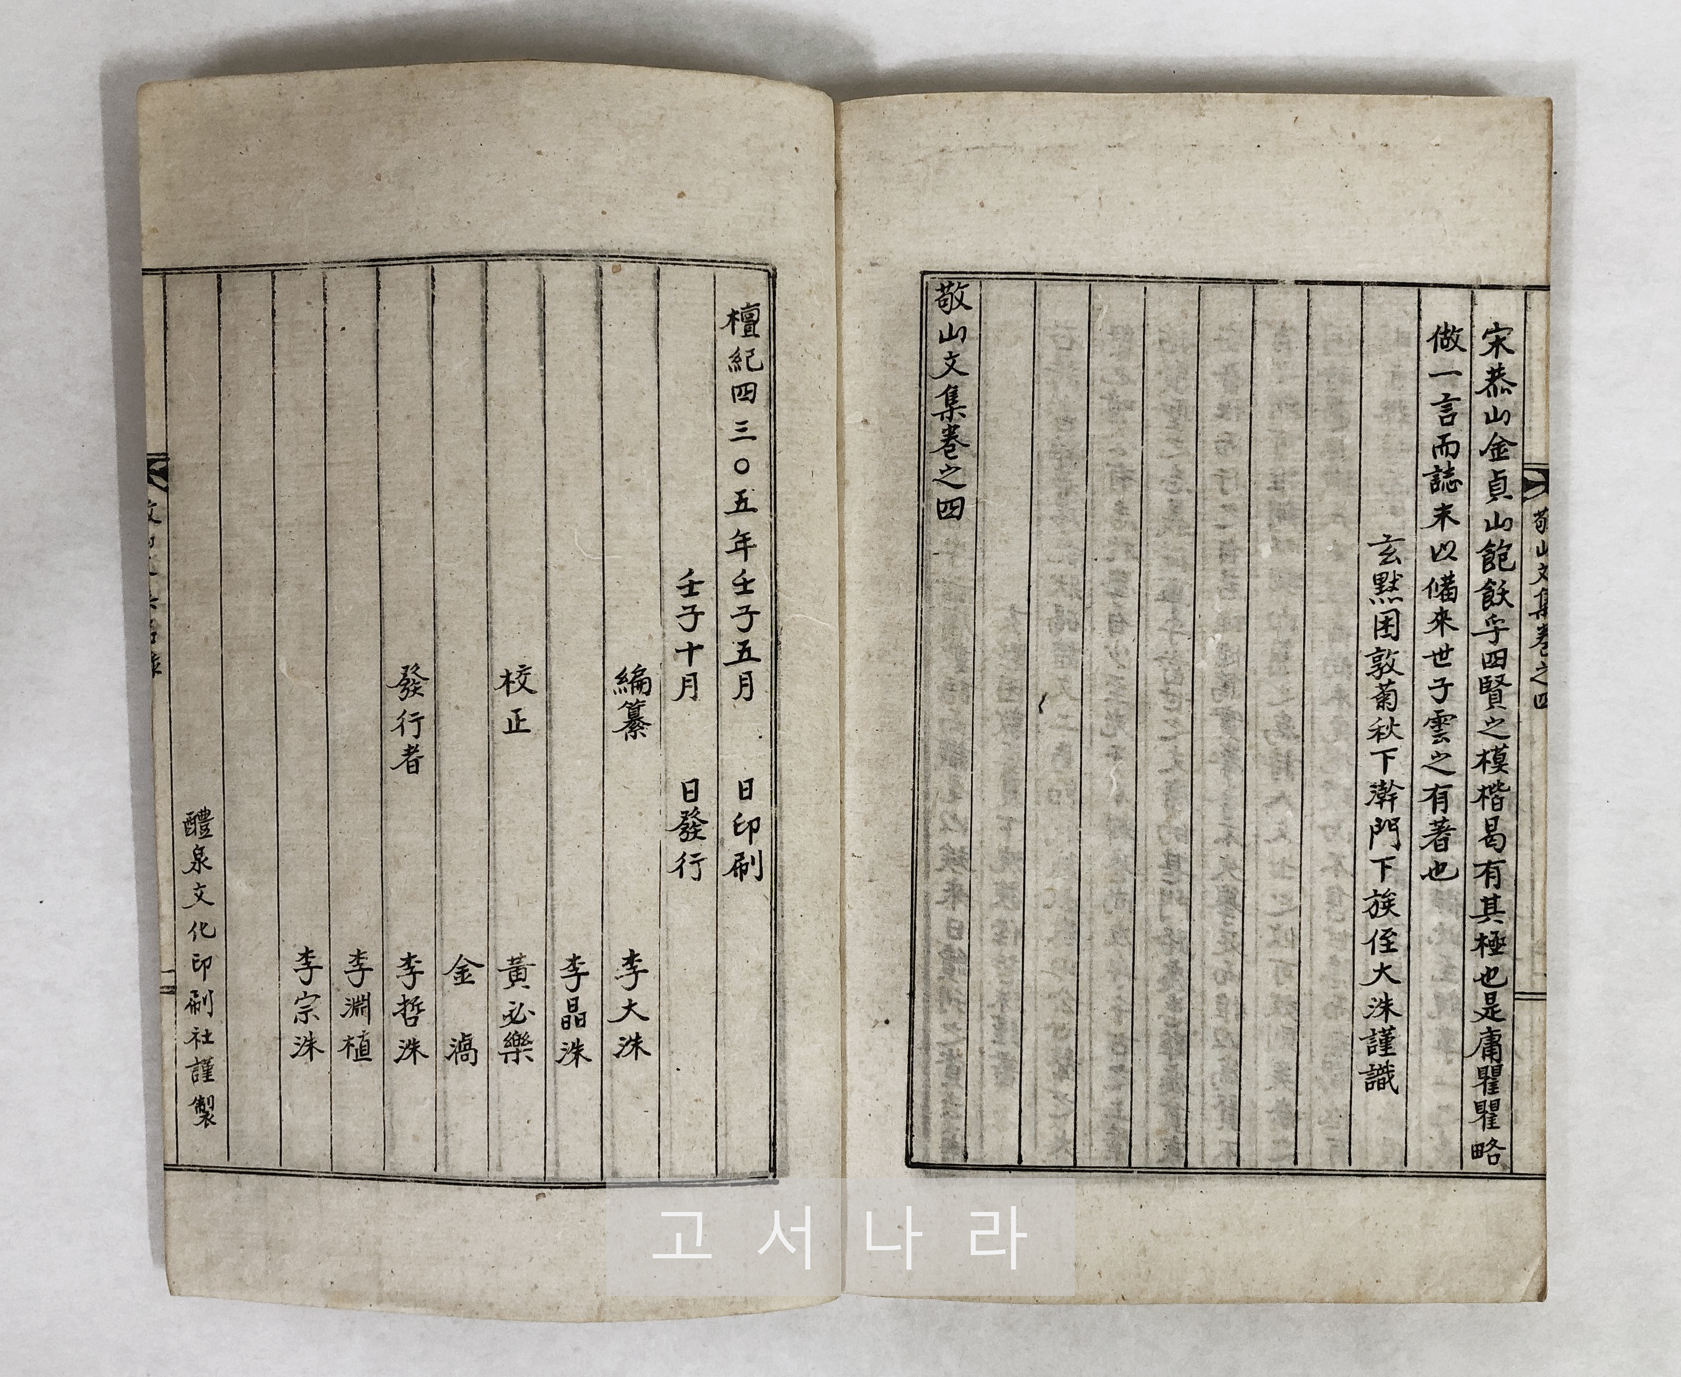 敬山文集卷之四
宋恭山金貞山飽飫乎四賢之模楷曷有其極也是庸瞿瞿略
做一言而誌末以備來世子雲之有著也
玄黓困敦菊秋下澣門下族侄大洙謹識
敬山文集卷之四
檀紀四三〇五年壬子五月 日印刷
壬子十月 日發行
編纂 李大洙
李晶洙
校正 黃必樂
金漓
發行者 李哲洙
李淵植
李宗洙
醴泉文化印刷社謹製
고서나라